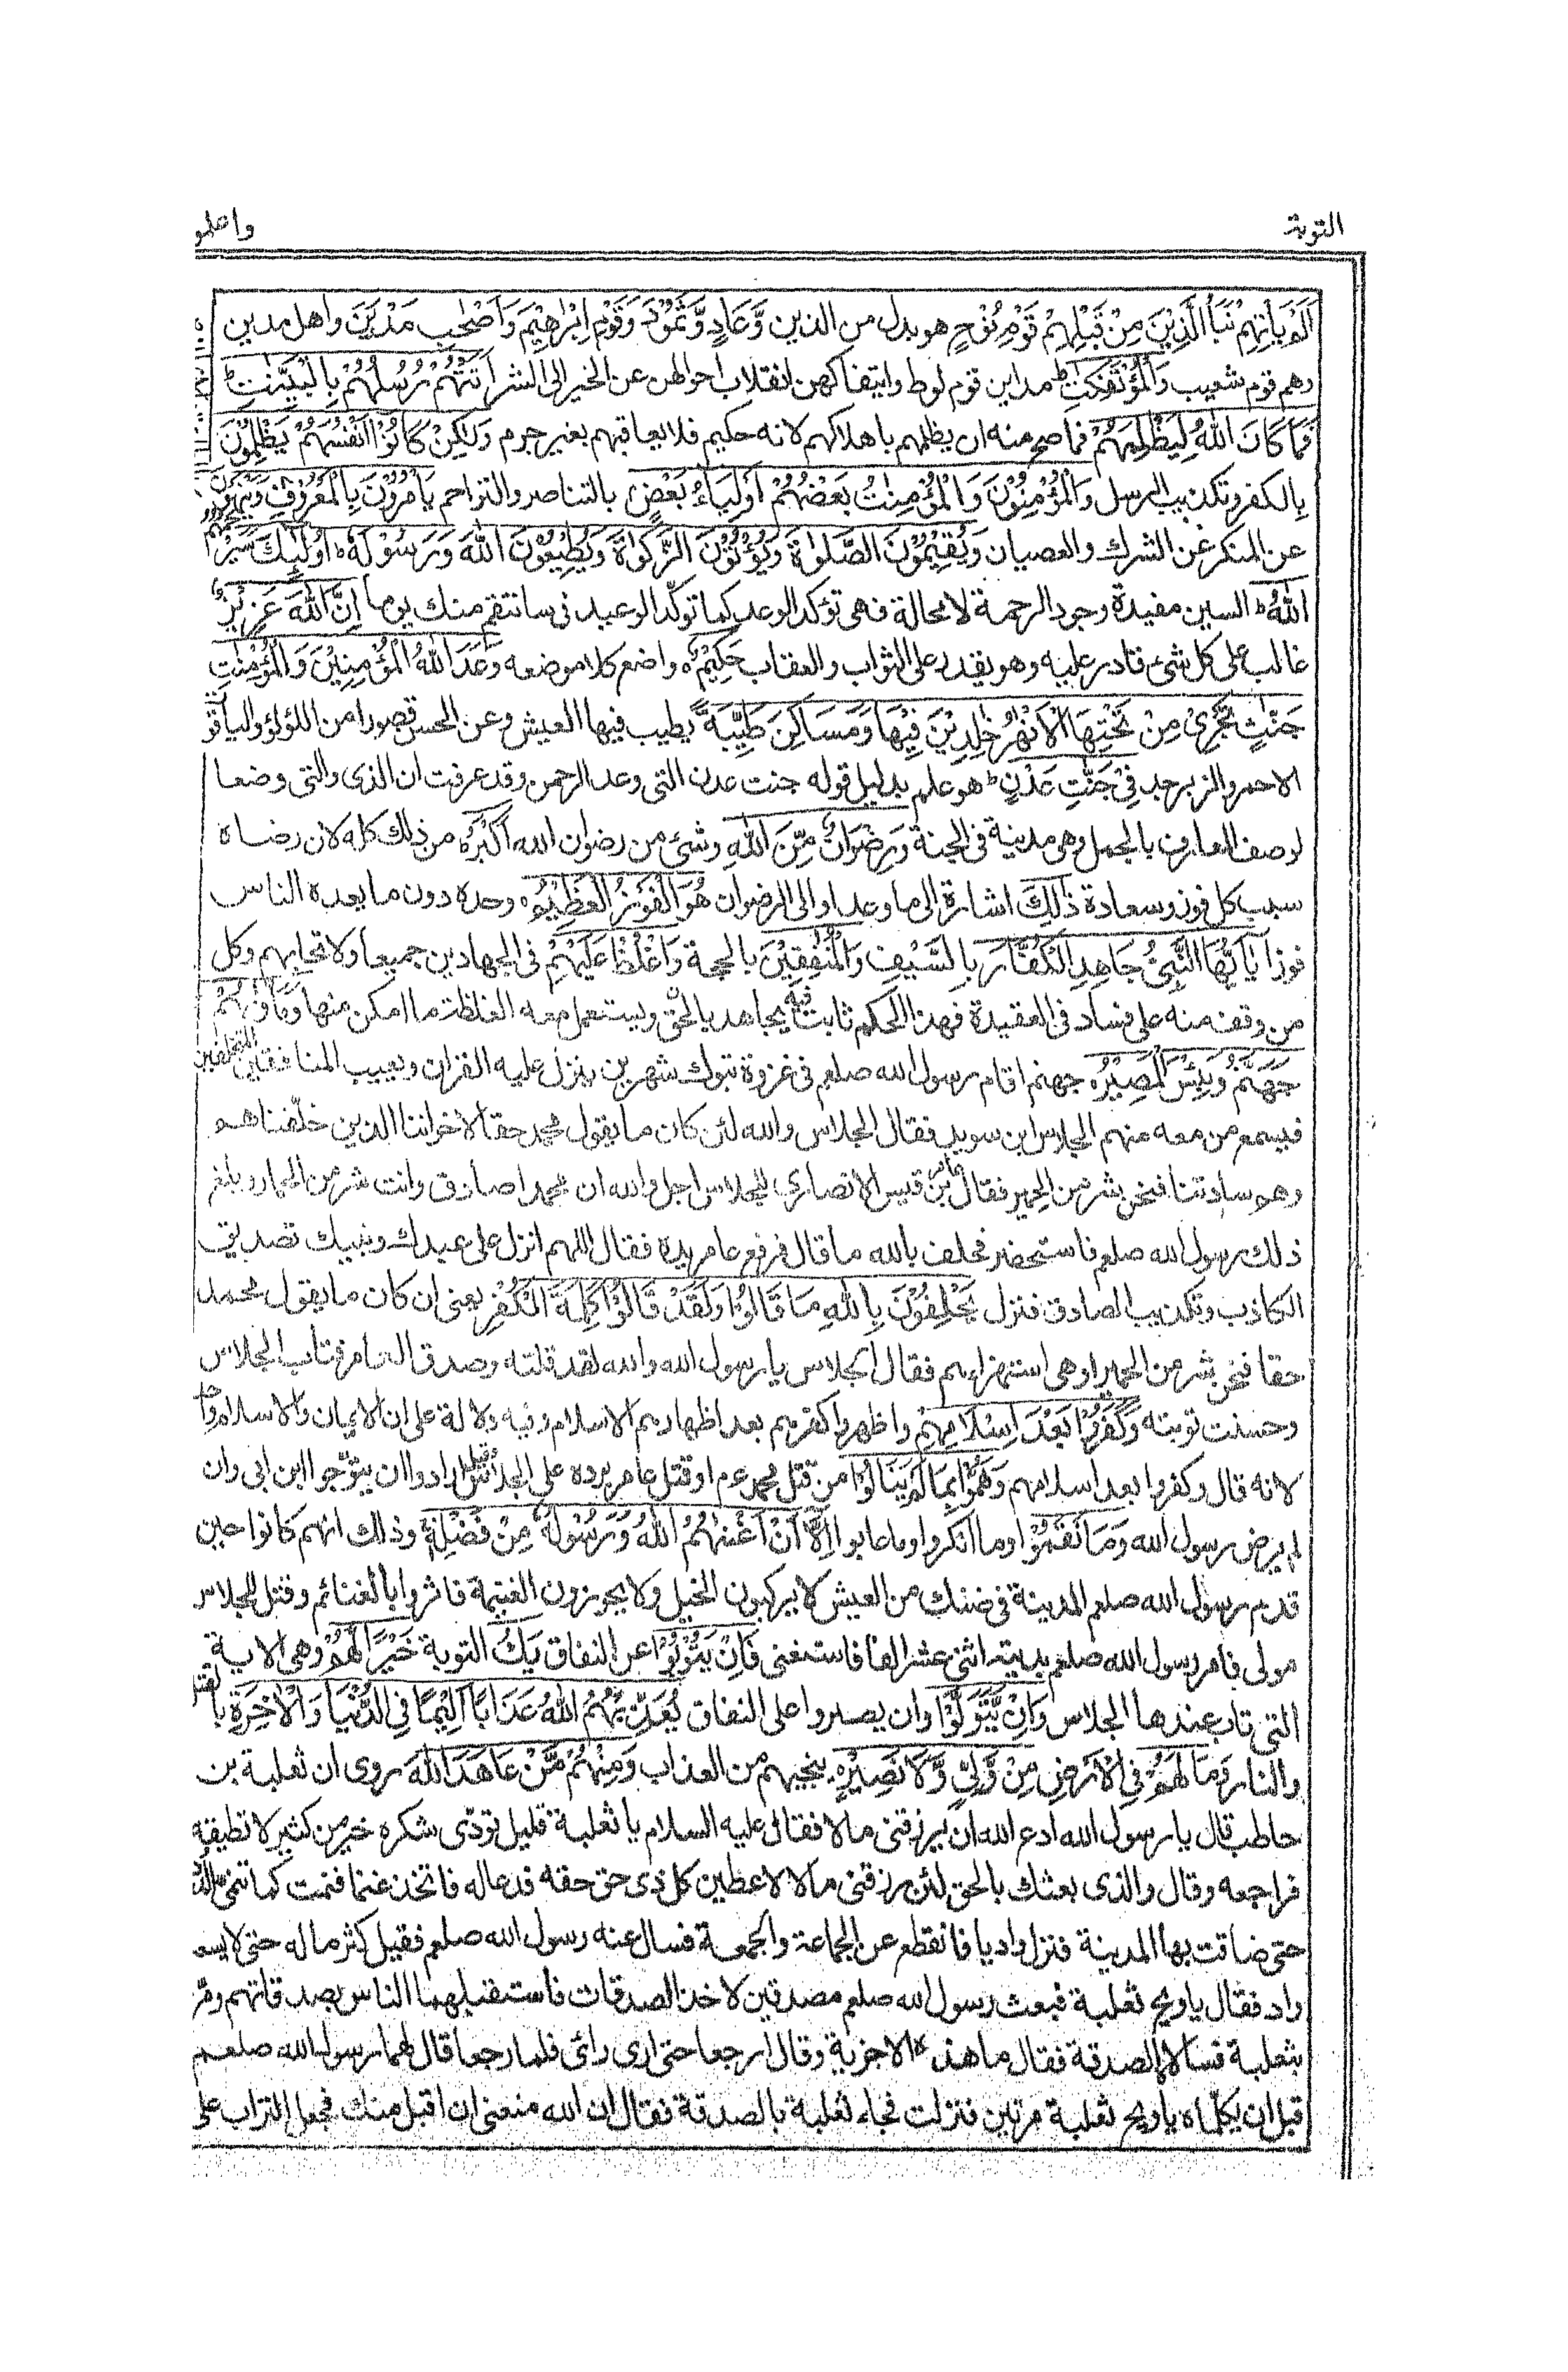 التوبة
واعلمو
اَلَمْ يَأْتِهِمْ نَبَأُ الَّذِيْنَ مِنْ قَبْلِهِمْ قَوْمِ نُوْحٍ هو بدل من الذين وَّعَادٍ وَّثَمُوْدَ وَقَوْمِ اِبْرٰهِيْمَ وَاَصْحٰبِ مَدْيَنَ واهل مدين
وهم قوم شعيب وَالْمُؤْتَفِكٰتِ ط مداين قوم لوط وايتفاكهن انقلاب احوالهن عن الخير الى الشر اَتَتْهُمْ رُسُلُهُمْ بِالْبَيِّنٰتِ ط
فَمَا كَانَ اللّٰهُ لِيَظْلِمَهُمْ فما صح منه ان يظلمهم باهلاكهم لانه حكيم فلا يعاقبهم بغير جرم وَلٰكِنْ كَانُوْۤا اَنْفُسَهُمْ يَظْلِمُوْنَ
بالكفر وتكذيب الرسل وَالْمُؤْمِنُوْنَ وَالْمُؤْمِنٰتُ بَعْضُهُمْ اَوْلِيَآءُ بَعْضٍ بالتناصر والتراحم يَاْمُرُوْنَ بِالْمَعْرُوْفِ وَيَنْهَوْنَ
عن المنكر عن الشرك والعصيان وَيُقِيْمُوْنَ الصَّلٰوةَ وَيُؤْتُوْنَ الزَّكٰوةَ وَيُطِيْعُوْنَ اللّٰهَ وَرَسُوْلَهٗ ط اُولٰٓئِكَ سَيَرْحَمُهُمُ
اللّٰهُ ط السين مفيدة وجود الرحمة لا محالة فهى تؤكد الوعد كما توكّد الوعيد فى سانتقم منك يوما اِنَّ اللّٰهَ عَزِيْزٌ
غالب على كل شىء قادر عليه وهو يقدر على الثواب والعقاب حَكِيْمٌ ٥ واضع كلا موضعه وَعَدَ اللّٰهُ الْمُؤْمِنِيْنَ وَالْمُؤْمِنٰتِ
جَنّٰتٍ تَجْرِىْ مِنْ تَحْتِهَا الْاَنْهٰرُ خٰلِدِيْنَ فِيْهَا وَمَسَاكِنَ طَيِّبَةً يطيب فيها العيش وعن الحسن قصورا من اللؤلؤ والياقوت
الاحمر والزبرجد فِىْ جَنّٰتِ عَدْنٍ ط هو علم بدليل قوله جنت عدن التى وعد الرحمن وقد عرفت ان الذى والتى وضعا
لوصف المعارف بالجمل وهى مدينة فى الجنة وَرِضْوَانٌ مِّنَ اللّٰهِ وشىء من رضوان الله اَكْبَرُ ط من ذلك كله لان رضاه
سبب كل فوز وسعادة ذٰلِكَ اشارة الى ما وعد او الى الرضوان هُوَ الْفَوْزُ الْعَظِيْمُ ٥ وحده دون ما يعده الناس
فوزا يٰۤاَيُّهَا النَّبِىُّ جَاهِدِ الْكُفَّارَ بالسَّيف وَالْمُنٰفِقِيْنَ بالحجة وَاغْلُظْ عَلَيْهِمْ فى الجهادين جميعا ولا تحابهم وكل
من وقف منه على فساد فى العقيدة فهذا الحكم ثابت فيه يجاهد بالحق ويستعمل معه الغلظة ما امكن منها وَمَاْوٰىهُمْ
جَهَنَّمُ وَبِئْسَ الْمَصِيْرُ ٥ جهنم اقام رسول الله صلعم فى غزوة تبوك شهرين ينزل عليه القران ويعيب المنافقين المتخلفين
فيسمع من معه منهم الجلاس ابن سويد فقال الجلاس والله لئن كان ما يقول محمد حقا لاخواننا الذين خلّفناهم
وهم ساداتنا فنحن شر من الحمير فقال عامر بن قيس الانصارى للجلاس اجل والله ان محمدا صادق وانت شر من الحمار وبلغ
ذلك رسول الله صلعم فاستحضر فحلف بالله ما قال فرفع عامر يده فقال اللهم انزل على عبدك ونبيك تصديق
الكاذب وتكذيب الصادق فنزل يَحْلِفُوْنَ بِاللّٰهِ مَا قَالُوْا وَلَقَدْ قَالُوْا كَلِمَةَ الْكُفْرِ يعنى ان كان ما يقول محمد
حقا فنحن شر من الحمير او هى استهزاءهم فقال الجلاس يا رسول الله والله لقد قلته وصدق عامر فتاب الجلاس
وحسنت توبته وَكَفَرُوْا بَعْدَ اِسْلَامِهِمْ واظهروا كفرهم بعد اظهارهم الاسلام وفيه دلالة على ان الايمان والاسلام واحد
لانه قال وكفروا بعد اسلامهم وَهَمُّوْا بِمَا لَمْ يَنَالُوْا من قتل محمد عم او قتل عامر برده على الجلاس وقيل ارادوا ان يتوّجوا ابن ابى وان
لم يرض رسول الله وَمَا نَقَمُوْۤا وما انكروا وما عابوا اِلَّاۤ اَنْ اَغْنٰهُمُ اللّٰهُ وَرَسُوْلُهٗ مِنْ فَضْلِهٖ وذلك انهم كانوا حين
قدم رسول الله صلعم المدينة فى ضنك من العيش لا يركبون الخيل ولا يحوزون الغنيمة فاثروا بالغنائم وقتل للجلاس
مولى فامر رسول الله صلعم بديته اثنى عشر الفا فاستغنى فَاِنْ يَّتُوْبُوْا عن النفاق يَكُ التوبة خَيْرًا لَّهُمْ وهى الاية
التى تاب عندها الجلاس وَاِنْ يَّتَوَلَّوْا وان يصروا على النفاق يُعَذِّبْهُمُ اللّٰهُ عَذَابًا اَلِيْمًا فِى الدُّنْيَا وَالْاٰخِرَةِ بالقتل
والنار وَمَا لَهُمْ فِى الْاَرْضِ مِنْ وَّلِىٍّ وَّلَا نَصِيْرٍ ٥ ينجيهم من العذاب وَمِنْهُمْ مَّنْ عَاهَدَ اللّٰهَ روى ان ثعلبة بن
حاطب قال يا رسول الله ادع الله ان يرزقنى مالا فقال عليه السلام يا ثعلبة قليل تودّى شكره خير من كثير لا تطيقه
فراجعه وقال والذى بعثك بالحق لئن رزقنى مالا لاعطين كل ذى حق حقه فدعا له فاتخذ غنما فنمت كما تنمى الدود
حتى ضاقت بها المدينة فنزل واديا فانقطع عن الجماعة والجمعة فسال عنه رسول الله صلعم فقيل كثر ماله حتى لا يسعه
واد فقال يا ويح ثعلبة فبعث رسول الله صلعم مصدقين لاخذ الصدقات فاستقبلهما الناس بصدقاتهم ومرّا
بثعلبة فسالاه الصدقة فقال ما هذه الا جزية وقال ارجعا حتى ارى رائى فلما رجعا قال لهما رسول الله صلعم
قبل ان يكلّماه يا ويح ثعلبة مرتين فنزلت فجاء ثعلبة بالصدقة فقال ان الله منعنى ان اقبل منك فجعل التراب على